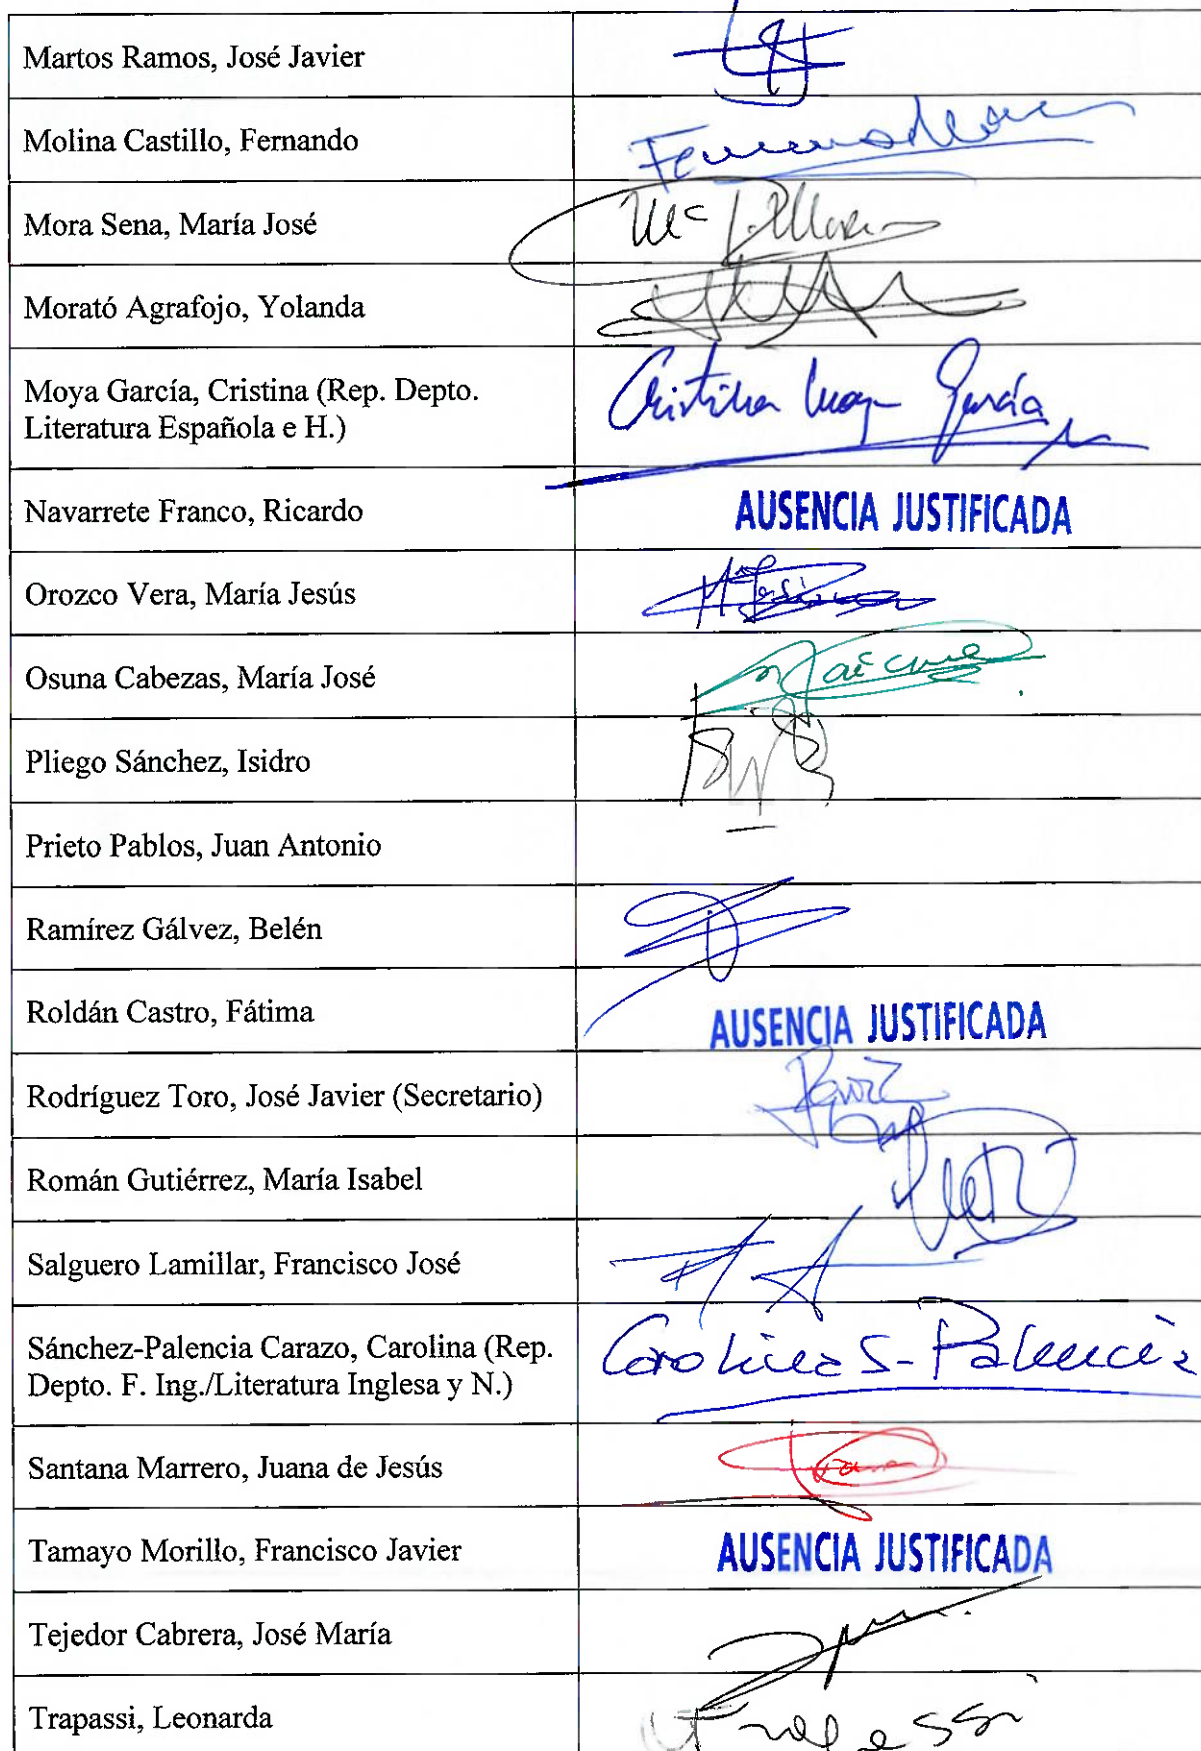 Martos Ramos, José Javier
Molina Castillo, Fernando
Mora Sena, María José
Mª J. Mora
Morató Agrafojo, Yolanda
Moya García, Cristina (Rep. Depto.
Literatura Española e H.)
Cristina Moya García
Navarrete Franco, Ricardo
AUSENCIA JUSTIFICADA
Orozco Vera, María Jesús
Osuna Cabezas, María José
Pliego Sánchez, Isidro
Prieto Pablos, Juan Antonio
Ramírez Gálvez, Belén
Roldán Castro, Fátima
AUSENCIA JUSTIFICADA
Rodríguez Toro, José Javier (Secretario)
Román Gutiérrez, María Isabel
Salguero Lamillar, Francisco José
Sánchez-Palencia Carazo, Carolina (Rep.
Depto. F. Ing./Literatura Inglesa y N.)
Carolina S-Palencia
Santana Marrero, Juana de Jesús
Tamayo Morillo, Francisco Javier
AUSENCIA JUSTIFICADA
Tejedor Cabrera, José María
Trapassi, Leonarda
Trapassi